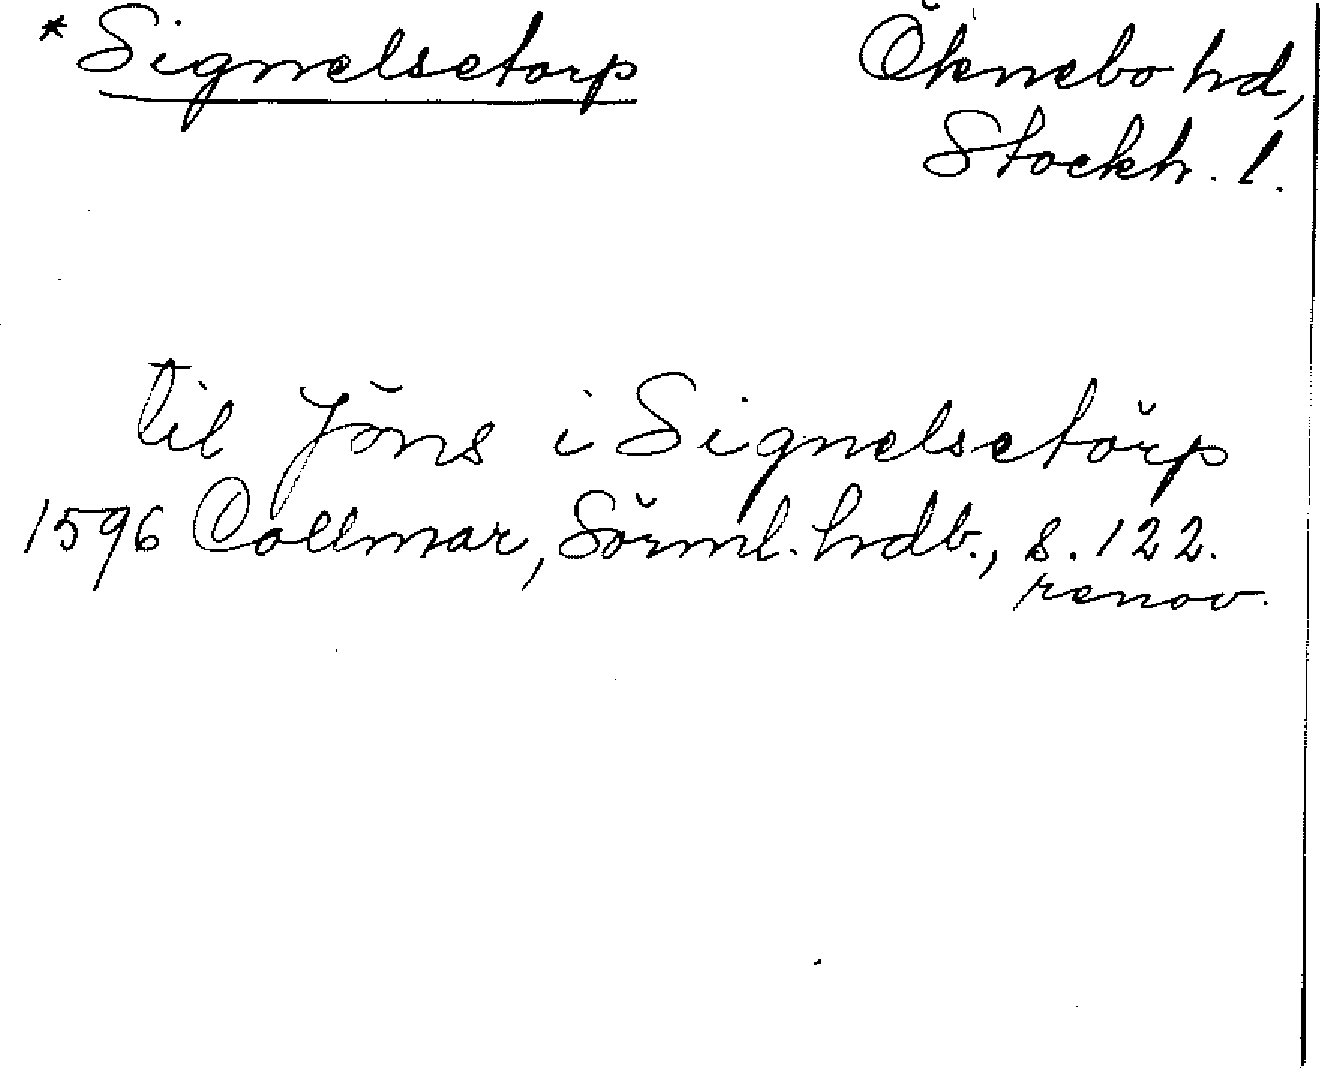 * Signelsetorp Öknebo hd,
Stockh. l.
til Jöns i Signelsetörp
1596 Collmar, Sörml. hdb., s. 122.
renov.